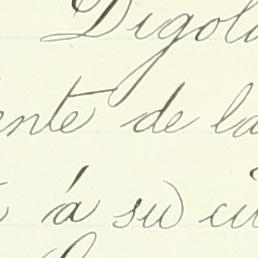 Digola
ente de la
á su